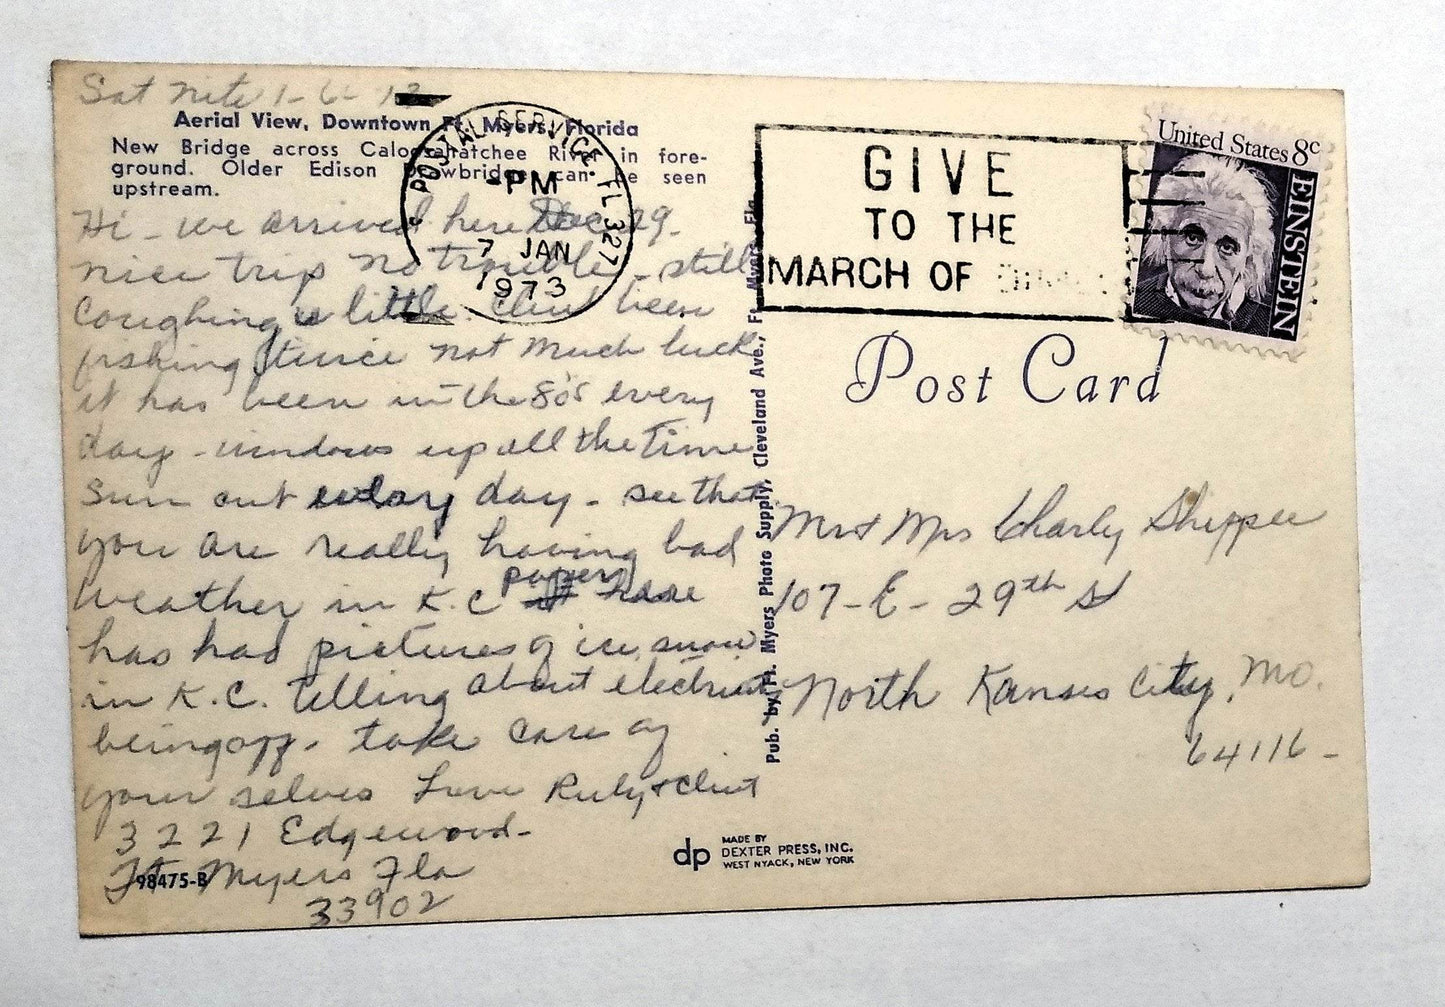 Sat Nite 1-6-73
Aerial View, Downtown Ft. Myers, Florida
New Bridge across Caloosahatchee River in fore-
ground. Older Edison Drawbridge can be seen
upstream.
Hi - we arrived here Dec 29 -
nice trip no trouble - still
coughing a little. Clint been
fishing twice not much luck
it has been in the 80's every
day - windows up all the time
sun out every day - see that
you are really having bad
weather in K.C papers have
has had pictures of ice, snow
in K.C. telling about electricity
being off - take care of
your selves Love Ruby & Clint
3221 Edgewood -
Ft. Myers Fla
33902
98475-B
POSTAL SERVICE FL 327
PM
7 JAN
1973
GIVE
TO THE
MARCH OF
United States 8c
EINSTEIN
Post Card
Mr & Mrs Charly Shippee
107 - E - 29th St
North Kansas City, Mo.
64116 -
Pub. by Ft. Myers Photo Supply, Cleveland Ave., Ft. Myers, Fla.
dp
MADE BY
DEXTER PRESS, INC.
WEST NYACK, NEW YORK